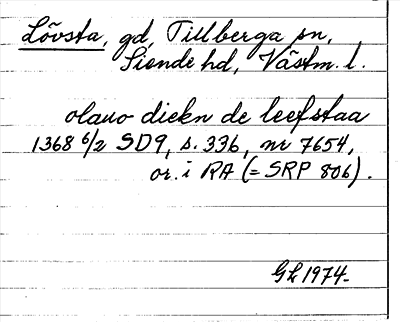 Lövsta, gd, Tillberga sn,
Siende hd, Västm. l.
olauo diekn de leefstaa
1368 6/2 SD9, s. 336, nr 7654,
or. i RA (= SRP 806).
GL 1974.